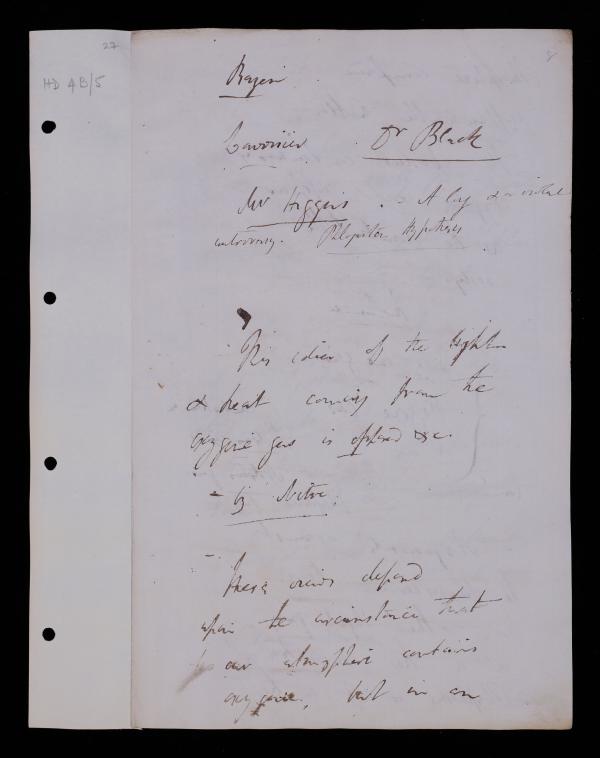 27
HD 4B/5
Bayen
Lavoisier Dr Black
Mr Higgins . - A long & violent
controversy. Phlogiston Hypothesis
This idea of the light
& heat coming from the
oxygene gas is opposed &c.
- by Nitre.
- These views depend
upon the circumstance that
our atmosphere contains
oxygene, but in an